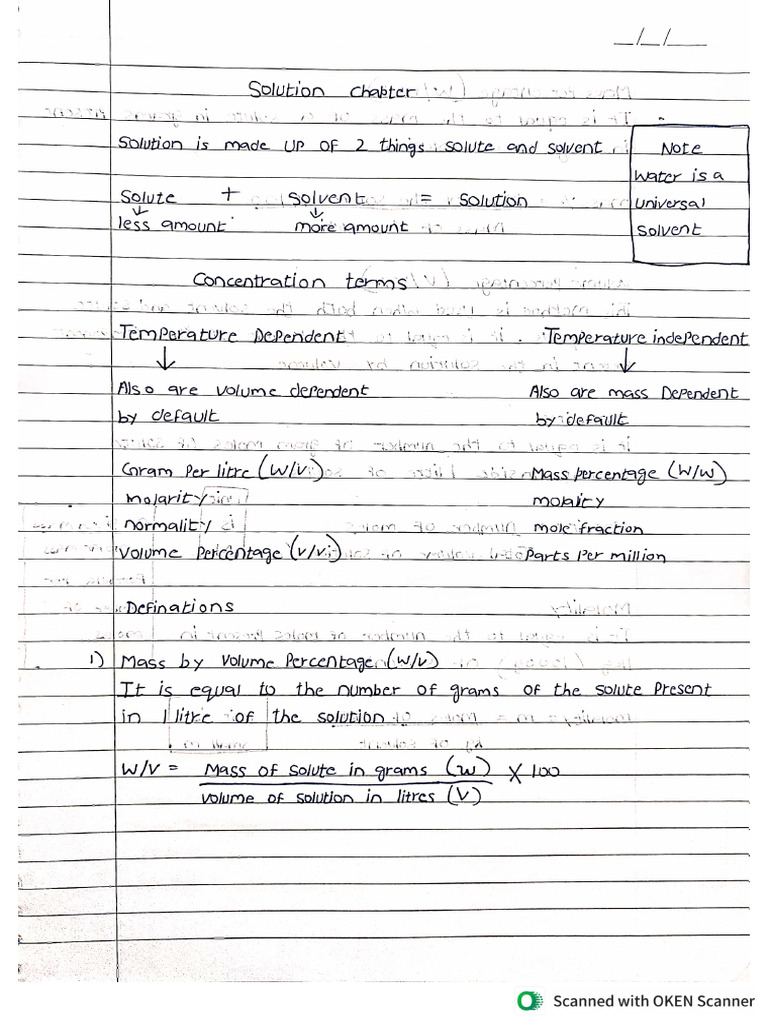 __/__/____
Solution chapter
Solution is made up of 2 things solute and solvent
Note
Water is a
universal
solvent
Solute + Solvent = Solution
less amount more amount
Concentration terms
Temperature Dependent Temperature independent
Also are volume dependent Also are mass Dependent
by default by default
Gram Per litre (W/V) Mass percentage (W/W)
molarity molality
normality mole fraction
Volume Percentage (V/V) Parts Per million
Definations
1) Mass by Volume Percentage (W/V)
It is equal to the number of grams of the solute Present
in 1 litre of the solution
W/V = Mass of solute in grams (W) X 100
volume of solution in litres (V)
Scanned with OKEN Scanner